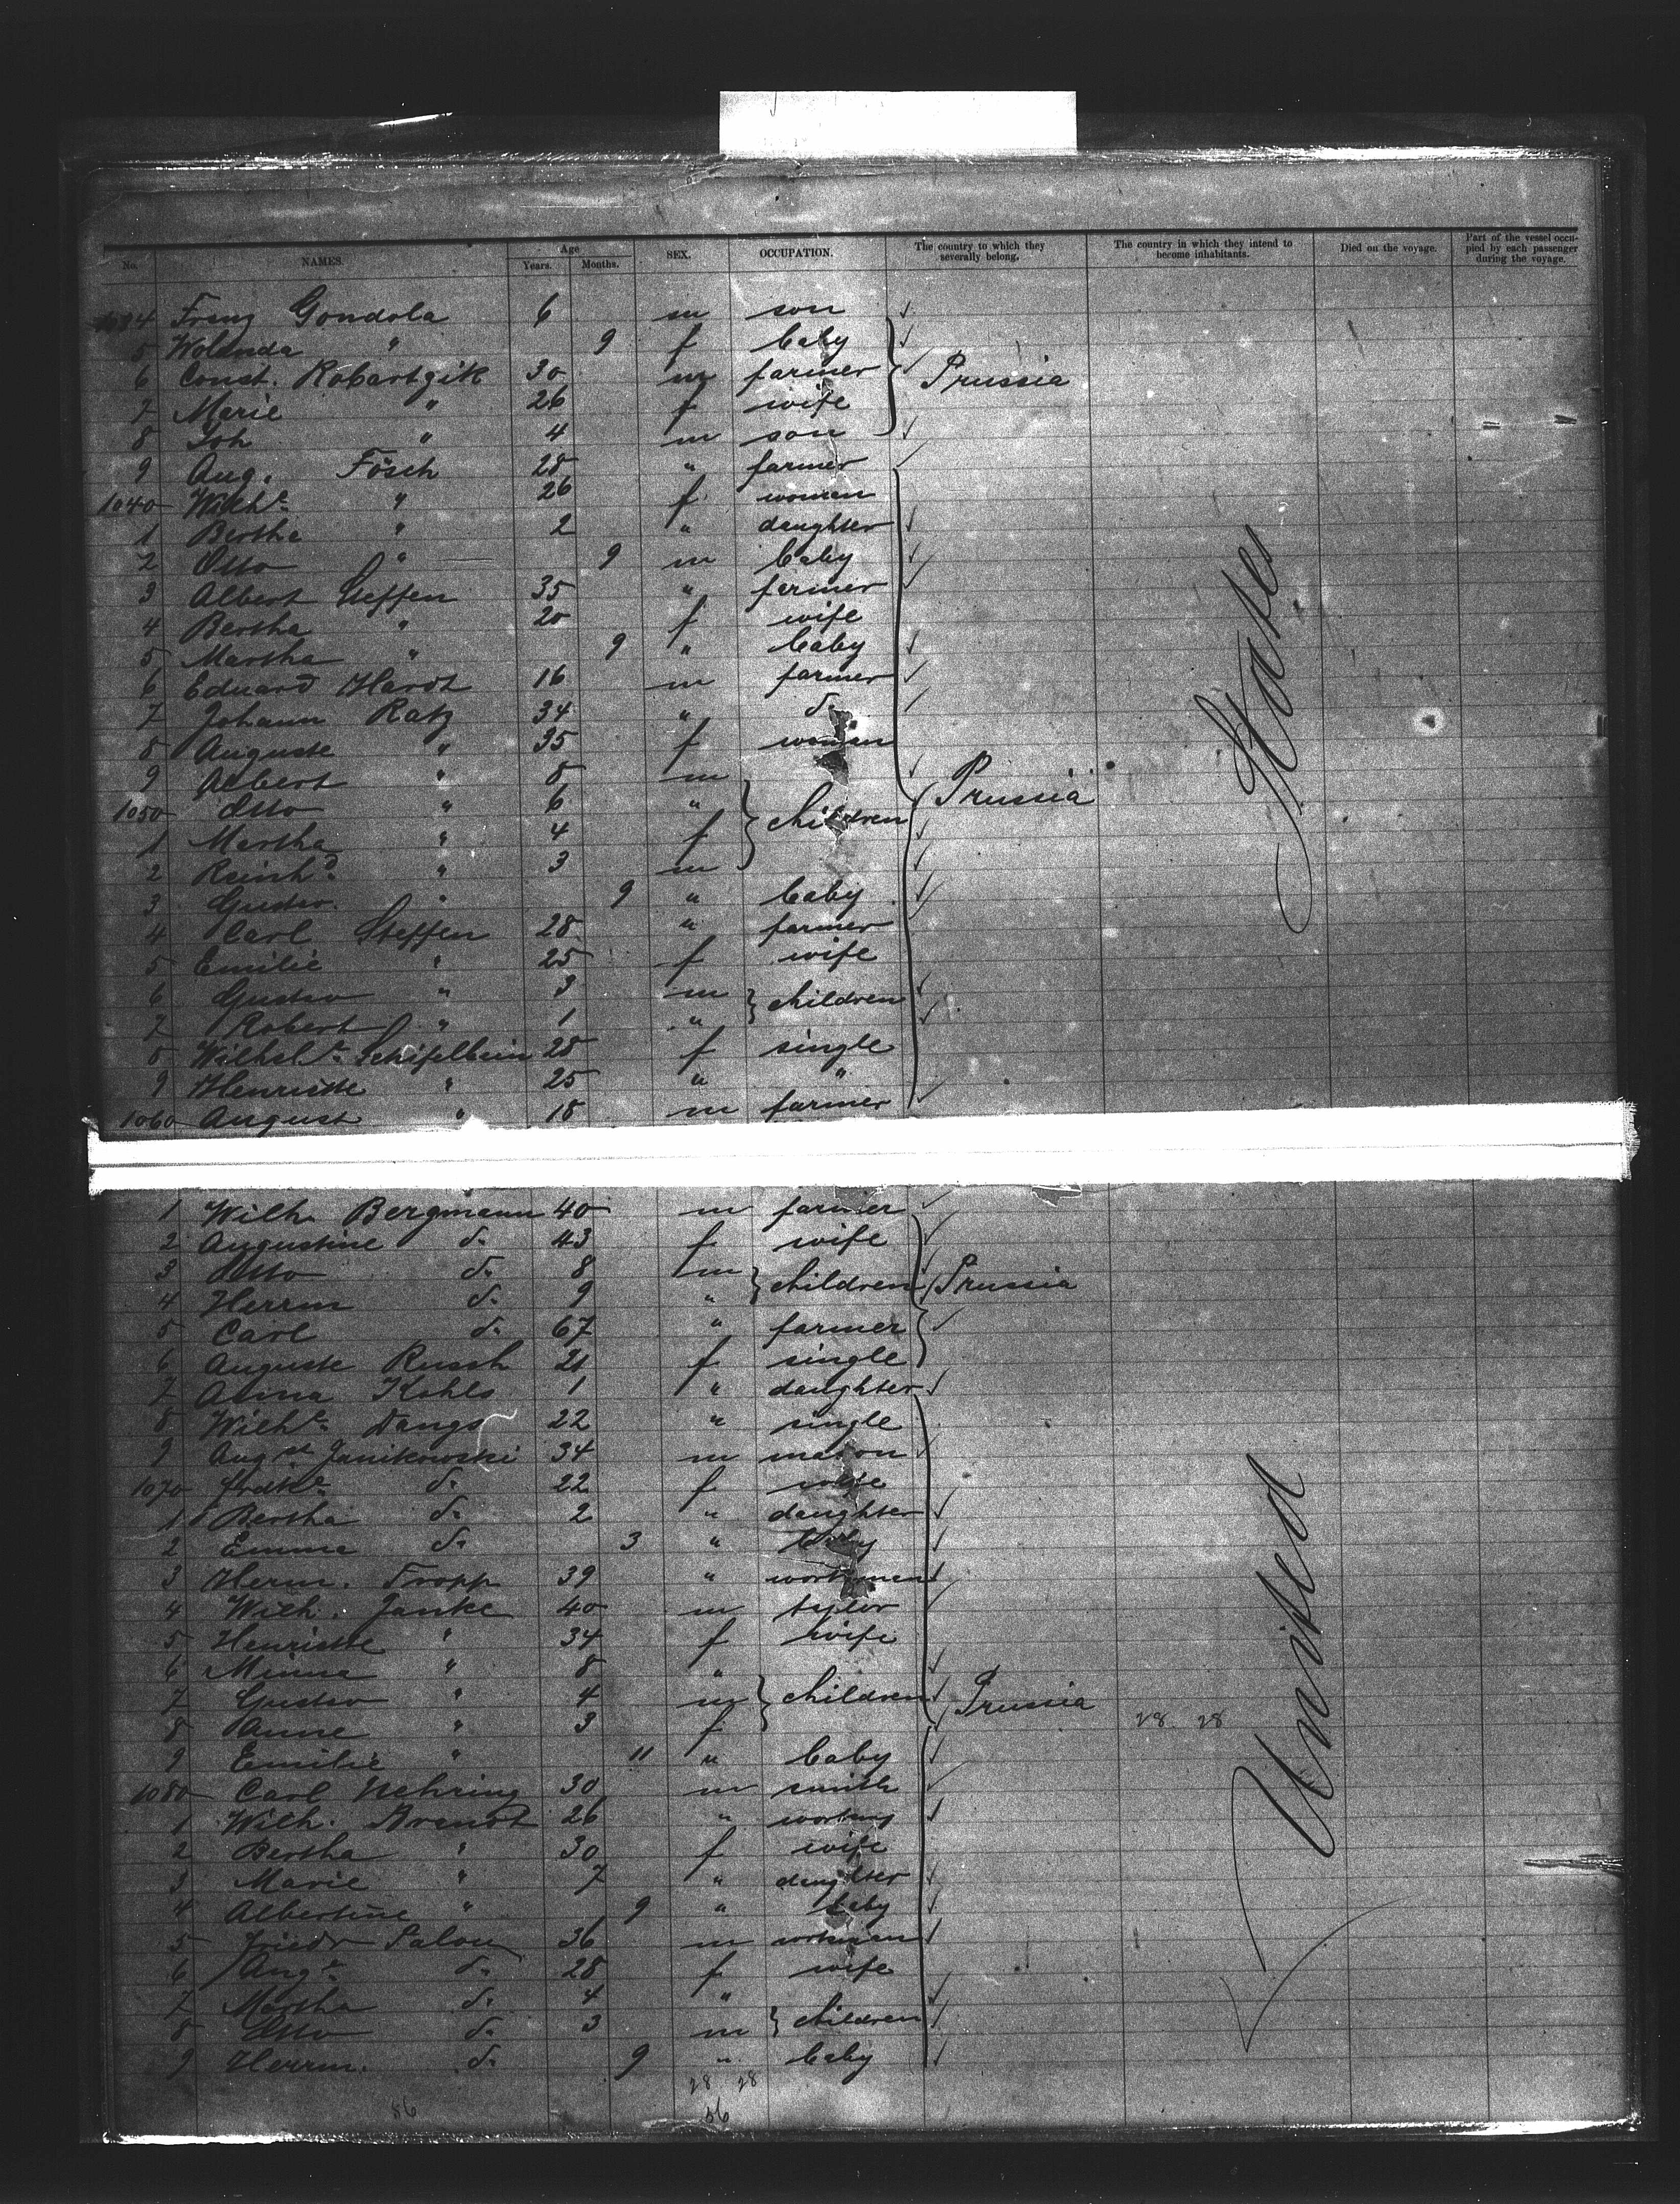 No. NAMES. Age Years. Months. SEX. OCCUPATION. The country to which they severally belong. The country in which they intend to become inhabitants. Died on the voyage. Part of the vessel occupied by each passenger during the voyage.
1034 Franz Gondola 6 m son
5 Wolanda " 9 f baby
6 Const. Robartzik 30 m farmer Prussia
7 Marie " 26 f wife
8 Joh " 4 m son
9 Aug. Fösch 28 " farmer
1040 Wilhe " 26 f women
1 Bertha " 2 " daughter
2 Otto " 9 m baby
3 Albert Steffen 35 " farmer
4 Bertha " 28 f wife
5 Martha " 9 " baby
6 Eduard Hardt 16 m farmer
7 Johann Ratz 34 " do
8 Auguste " 35 f woman
9 Albert " 8 m
1050 Otto " 6 " children Prussia
1 Martha " 4 f
2 Reinhd " 3 m
3 Gustav. " 9 " baby
4 Carl Steffen 28 " farmer
5 Emilie " 25 f wife
6 Gustav " 3 m children
7 Robert " 1 "
8 Wilhele Schifelbein 28 f single
9 Henriette " 25 " "
1060 August " 18 m farmer
States
1 Wilh. Bergmann 40 m farmer
2 Augustine do 43 f wife
3 Otto do 8 m children Prussia
4 Herrm do 9 "
5 Carl do 67 " farmer
6 Auguste Russh 21 f single
7 Anna Kohls 1 " daughter
8 Wilhe Dangs 22 " single
9 Augst Janikowski 34 m mason
1070 Frdke do 22 f wife
1 Bertha do 2 " daughter
2 Emma do 3 " baby
3 Herm. Tropp 39 " workmen
4 Wilh. Janke 40 m taylor
5 Henriette " 34 f wife
6 Minna " 8 "
7 Gustav " 4 m children Prussia
8 Anne " 3 f 28 28
9 Emilie " 11 " baby
1080 Carl Nehring 30 m smith
1 Wilh. Arendt 26 "
2 Bertha " 30 f wife
3 Marie " 7 " daughter
4 Albertine " 9 " baby
5 Friedr 36 m workman
6 Auge do 28 f wife
7 Martha do 4 "
8 Otto do 3 m children
9 Herrm. do 9 " baby
United
28 28
56 56